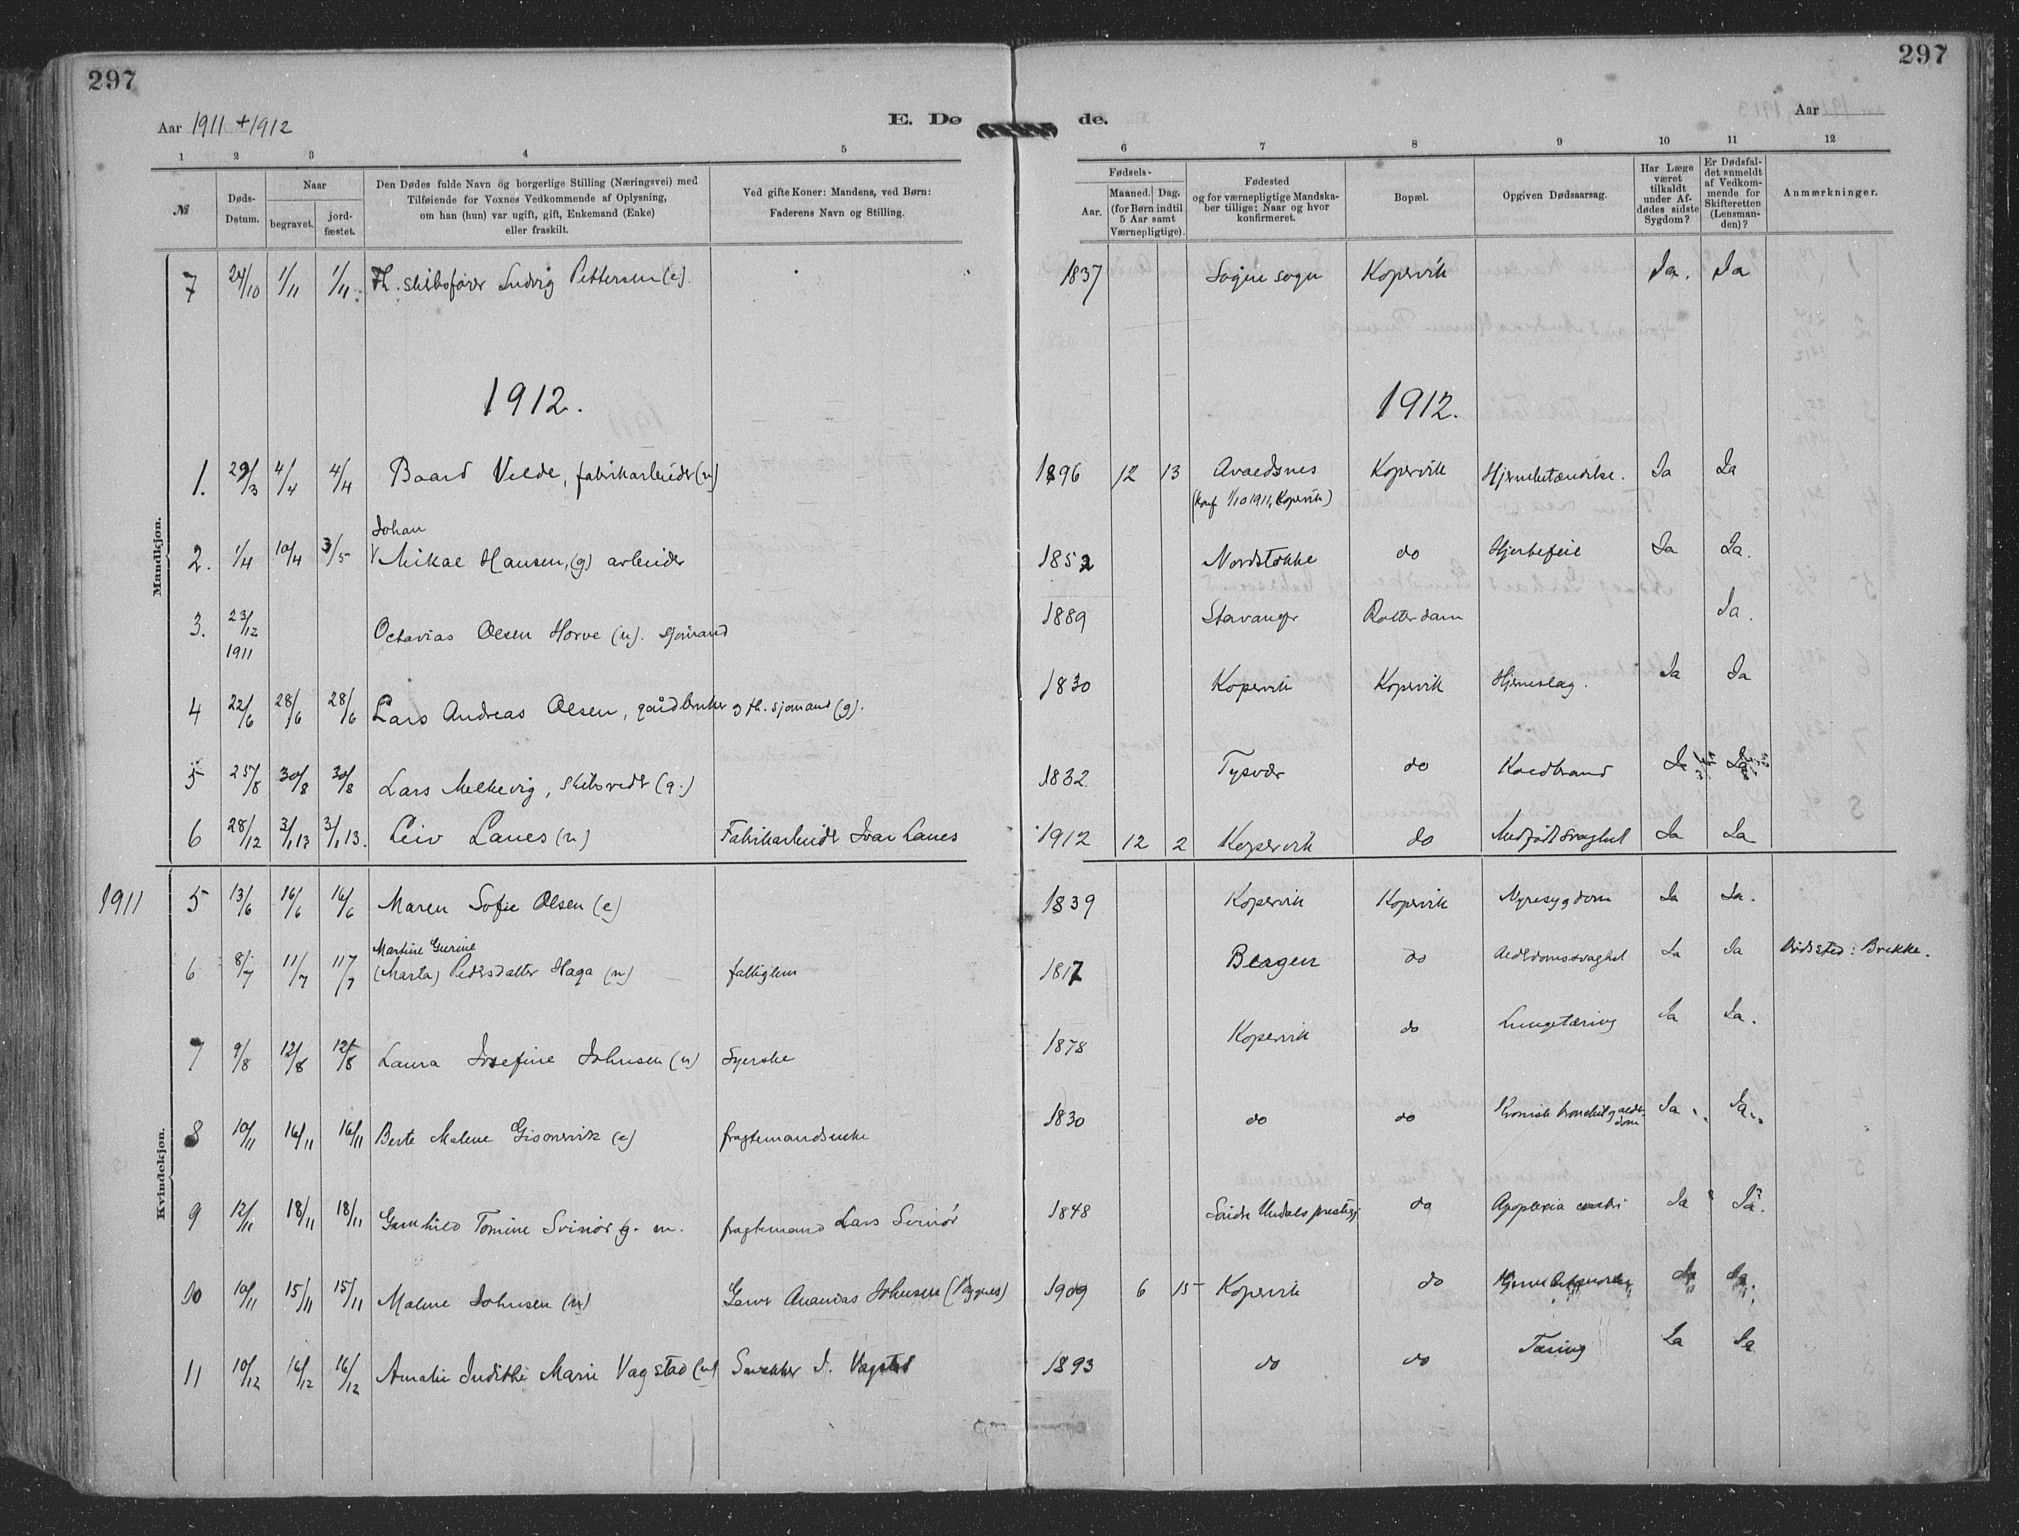 297
297
Aar 1911 + 1912
E. Dø
de.
Aar
1 2 3 4 5 6 7 8 9 10 11 12
№
Døds-
Datum.
Naar
begravet.
jord-
fæstet.
Den Dødes fulde Navn og borgerlige Stilling (Næringsvei) med
Tilføiende for Voxnes Vedkommende af Oplysning,
om han (hun) var ugift, gift, Enkemand (Enke)
eller fraskilt.
Ved gifte Koner: Mandens, ved Børn:
Faderens Navn og Stilling.
Fødsels-
Aar.
Maaned. Dag.
(for Børn indtil
5 Aar samt
Værnepligtige).
Fødested
og for værnepligtige Mandska-
ber tillige: Naar og hvor
konfirmeret.
Bopæl.
Opgiven Dødsaarsag.
Har Læge
været
tilkaldt
under Af-
dødes sidste
Sygdom?
Er Dødsfal-
det anmeldt
af Vedkom-
mende for
Skifteretten
(Lensman-
den)?
Anmærkninger.
Mandkjøn.
7 24/10 1/11 1/11. Fh. skibsfører Ludvig Pettersen (e). 1837 Sogne sogn Kopervik Ja. Ja
1912. 1912.
1. 29/3 4/4 4/4 Baard Velde, fabrikarbeider (u) 1896 12 13 Avaldsnes Kopervik Hjernebetændelse. Ja Ja
(konf 1/10 1911, Kopervik)
Johan
2. 1/4 10/4 3/5 Mikal Hansen, (g) arbeider 1852 Nordstokke do Hjertefeil Ja Ja.
3. 23/12 1911 Octavias Olsen Horve (u). sjømand 1889 Stavanger Rotterdam Ja.
4 22/6 28/6 28/6 Lars Andreas Olsen, gårdbruker og fh. sjømand (g). 1830 Kopervik Kopervik Hjerneslag. Ja Ja
5 25/8 30/8 30/8 Lars Melkevig, skibsreder (g.) 1832 Tysvær do Koldbrand Ja Ja
6 28/12 3/1 13 3/1 13. Leiv Lanes (u) Fabrikarbeider Ivar Lanes 1912 12 2 Kopervik do Medfødt svaghet Ja Ja
Kvindekjøn.
1911 5 13/6 16/6 16/6 Maren Sofie Olsen (e) 1839 Kopervik Kopervik Nyresygdom Ja Ja.
Martine Gurine
6 8/7 11/7 11/7 (Marta) Pedersdatter Haga (u) fattiglem 1817 Alderdomssvaghet do Ja Ja Bidsted: Brekke.
7 9/8 12/8 12/8 Laura Josefine Johnsen (u) Syerske 1878 Kopervik do Lungetæring Ja Ja.
8 10/11 16/11 16/11 Berte Malene (e) fragtemandsenke 1830 do do Kronisk bronchit og alderdom Ja. Ja.
9 12/11 18/11 18/11 Gunhild Tomine Svinør g. m. fragtemand Lars Svinør 1848 Søndre Undals prestegj do Apoplexia cerebri Ja Ja.
10 10/11 15/11 15/11 Malene Johnsen (u) Garver Ananias Johnsen (Bygnes) 1909 6 15 Kopervik do Hjernebetændelse Ja Ja.
11 10/12 16/12 16/12 Amalie Judithe Marie Vagstad (u) Snekker J. Vagstad 1893 do do Tæring Ja Ja